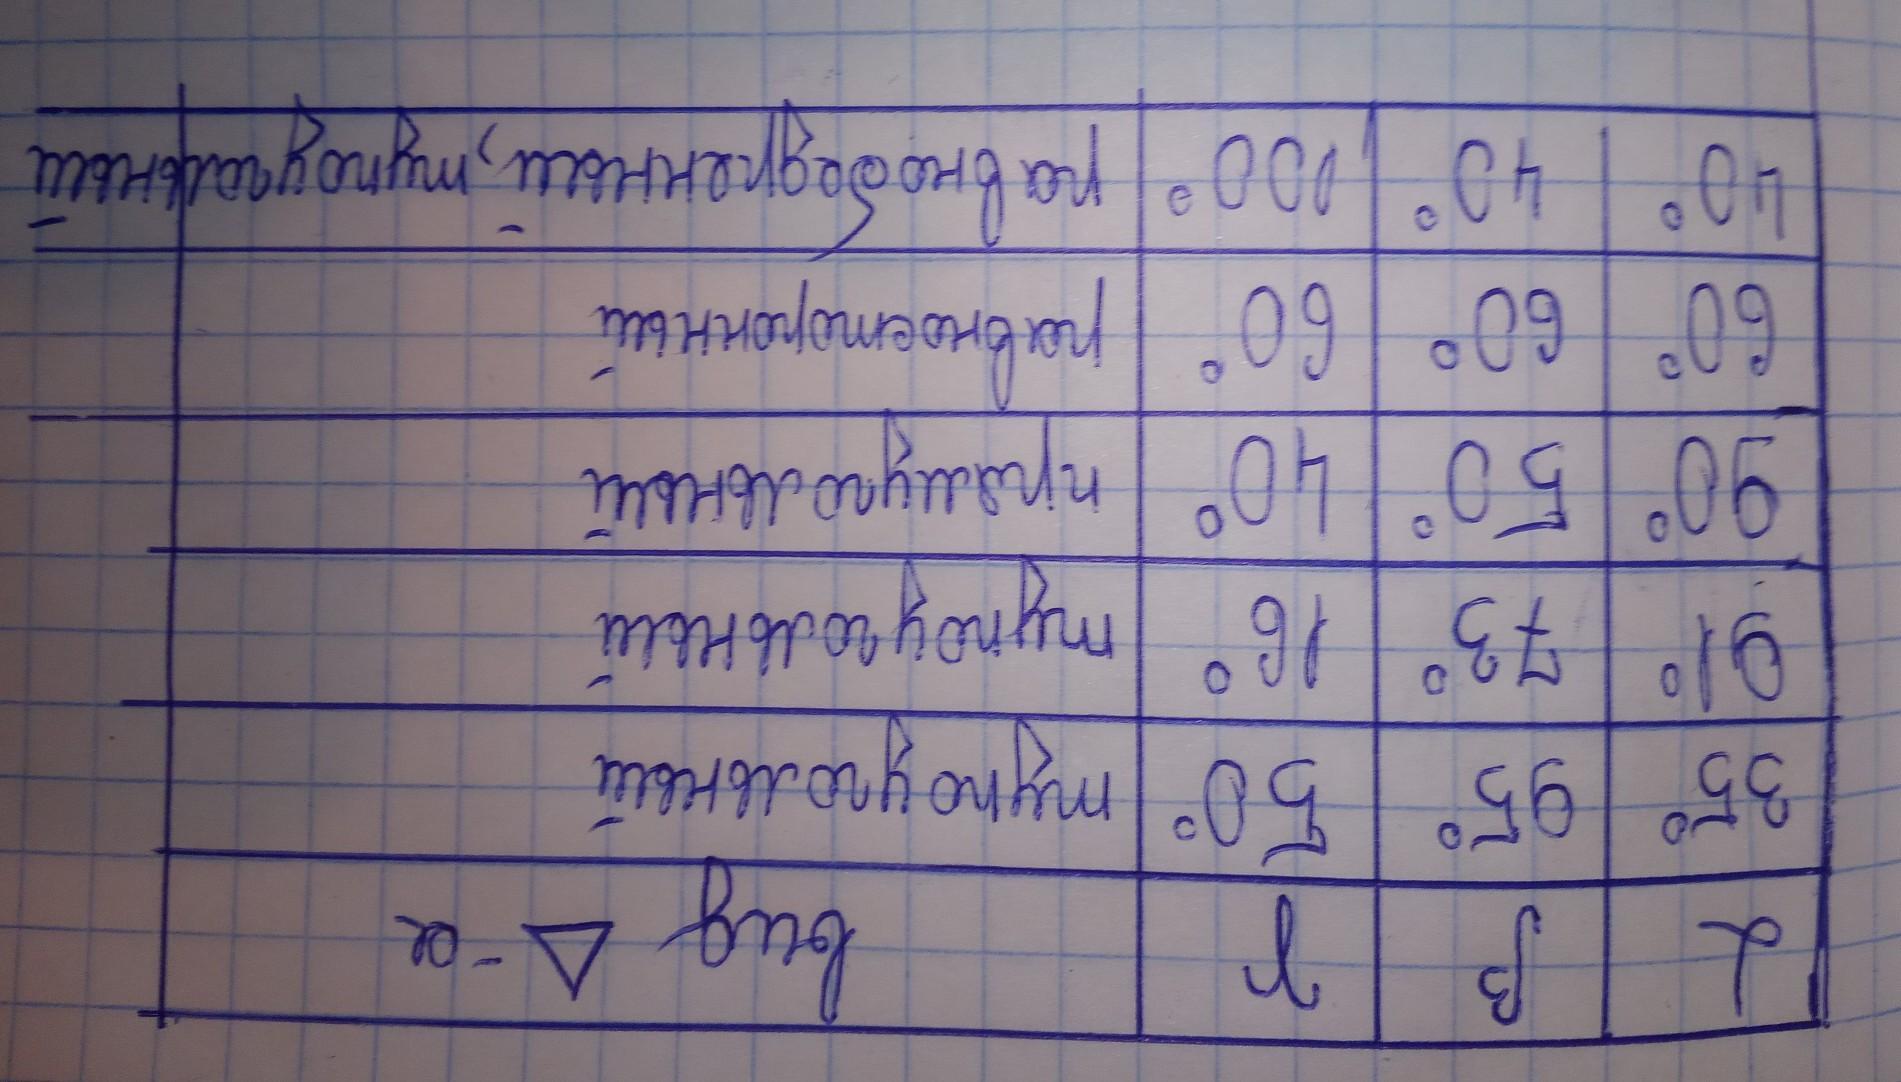 α β γ вид △-ка
35° 95° 50° тупоугольный
91° 73° 16° тупоугольный
90° 50° 40° прямугольный
60° 60° 60° равносторонний
40° 40° 100° равнобедренный, тупоугольный